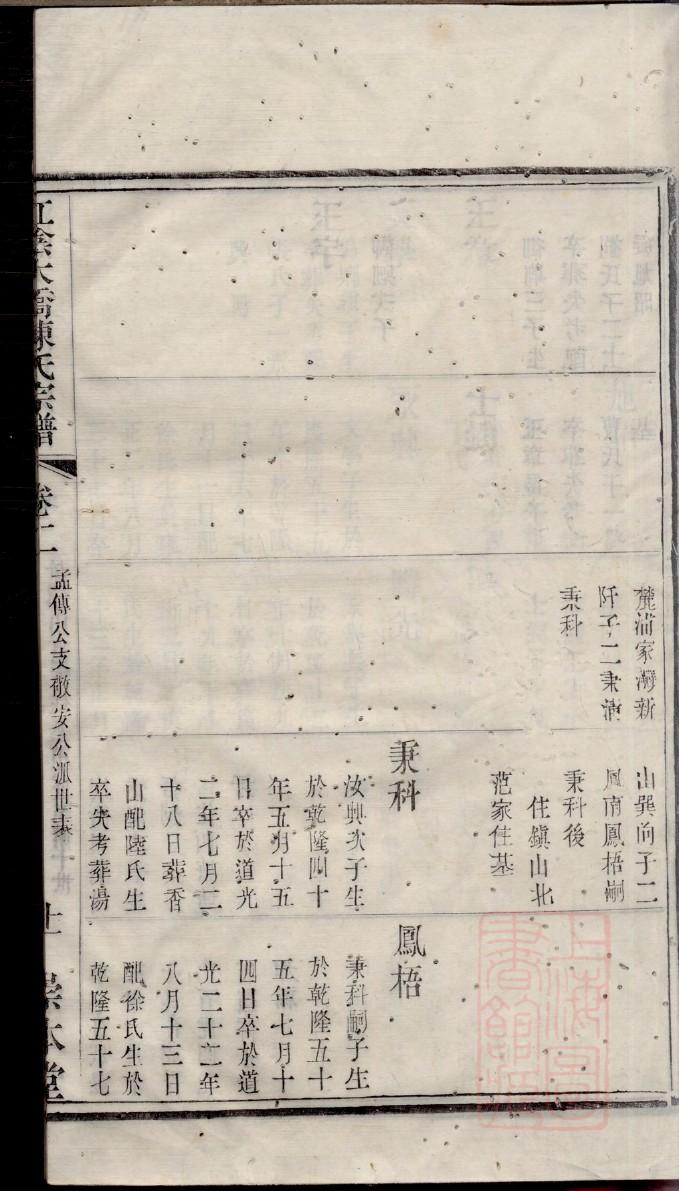 麓浦家灣新
阡子二秉清
秉科
山巽向子二
鳳南鳳梧嗣
秉科後
住鎮山北
范家住基
秉科
汝興次子生
於乾隆四十
年五月十五
日卒於道光
二年七月二
十八日葬香
山配陸氏生
卒失考葬湯
鳳梧
秉科嗣子生
於乾隆五十
五年七月十
四日卒於道
光二十二年
八月十三日
配徐氏生於
乾隆五十七
江陰大橋陳氏宗譜
卷十二
孟傳公支敬安公派世表
十一
崇本堂
上海圖書館藏